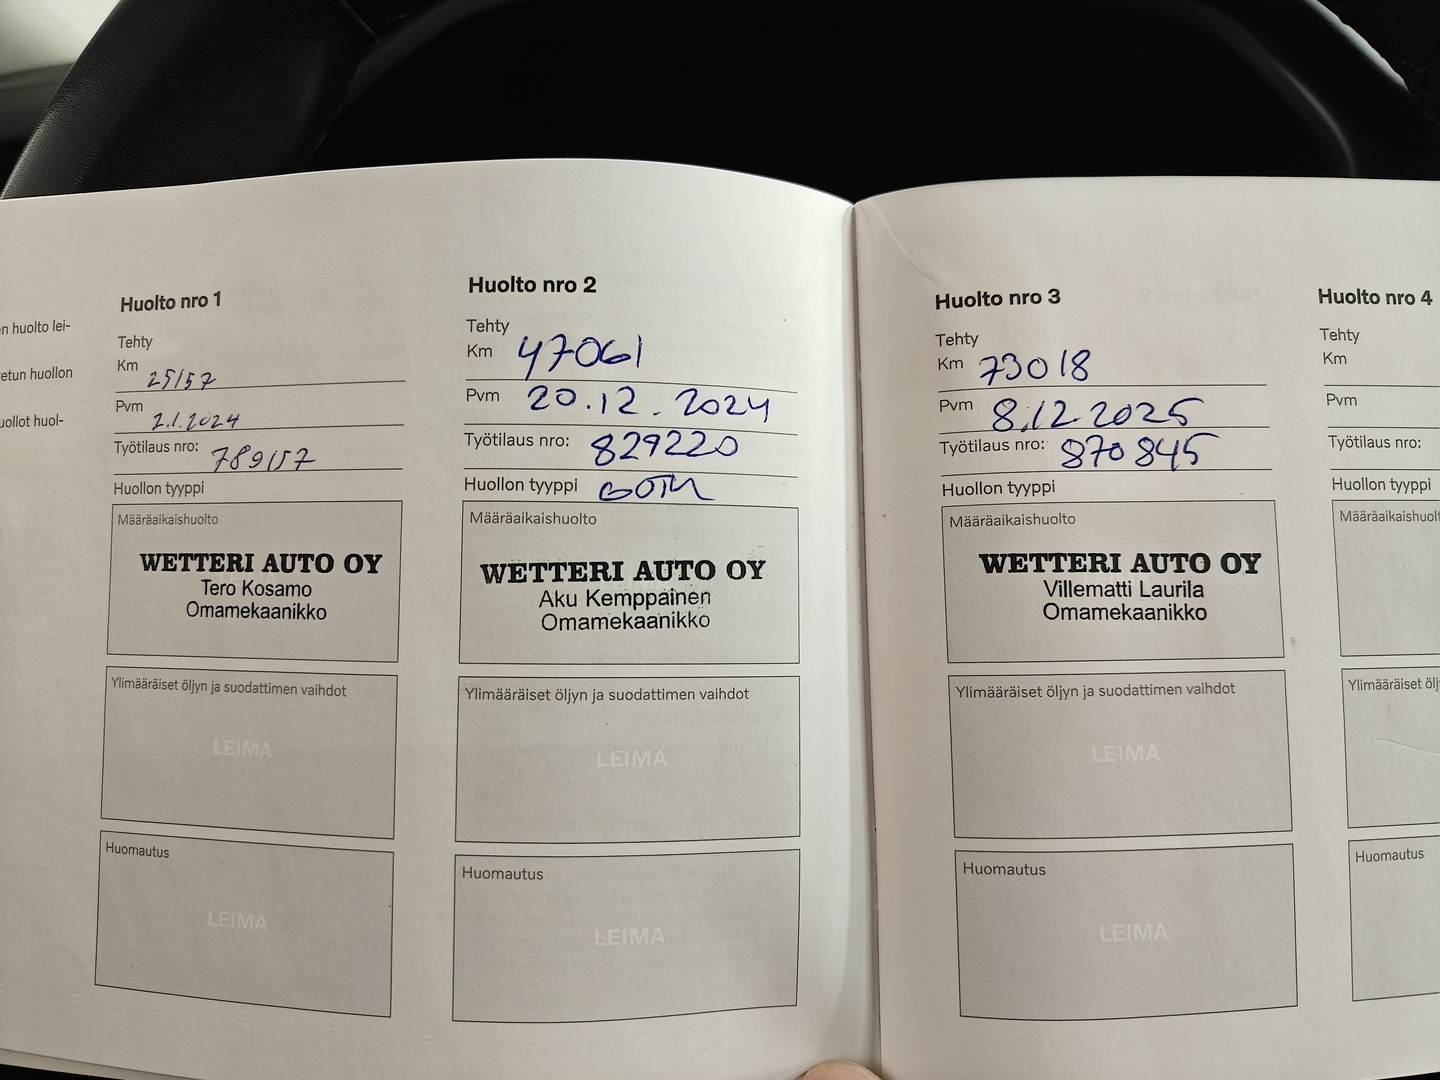 en huolto lei-
etun huollon
uollot huol-
Huolto nro 1
Tehty
Km 25157
Pvm 2.1.2024
Työtilaus nro: 789157
Huollon tyyppi
Määräaikaishuolto
WETTERI AUTO OY
Tero Kosamo
Omamekaanikko
Ylimääräiset öljyn ja suodattimen vaihdot
LEIMA
Huomautus
LEIMA
Huolto nro 2
Tehty
Km 47061
Pvm 20.12.2024
Työtilaus nro: 829220
Huollon tyyppi
Määräaikaishuolto
WETTERI AUTO OY
Aku Kemppainen
Omamekaanikko
Ylimääräiset öljyn ja suodattimen vaihdot
LEIMA
Huomautus
LEIMA
Huolto nro 3
Tehty
Km 73018
Pvm 8.12.2025
Työtilaus nro: 870845
Huollon tyyppi
Määräaikaishuolto
WETTERI AUTO OY
Villematti Laurila
Omamekaanikko
Ylimääräiset öljyn ja suodattimen vaihdot
LEIMA
Huomautus
LEIMA
Huolto nro 4
Tehty
Km
Pvm
Työtilaus nro:
Huollon tyyppi
Määräaikaishuolt
Ylimääräiset ölj
Huomautus